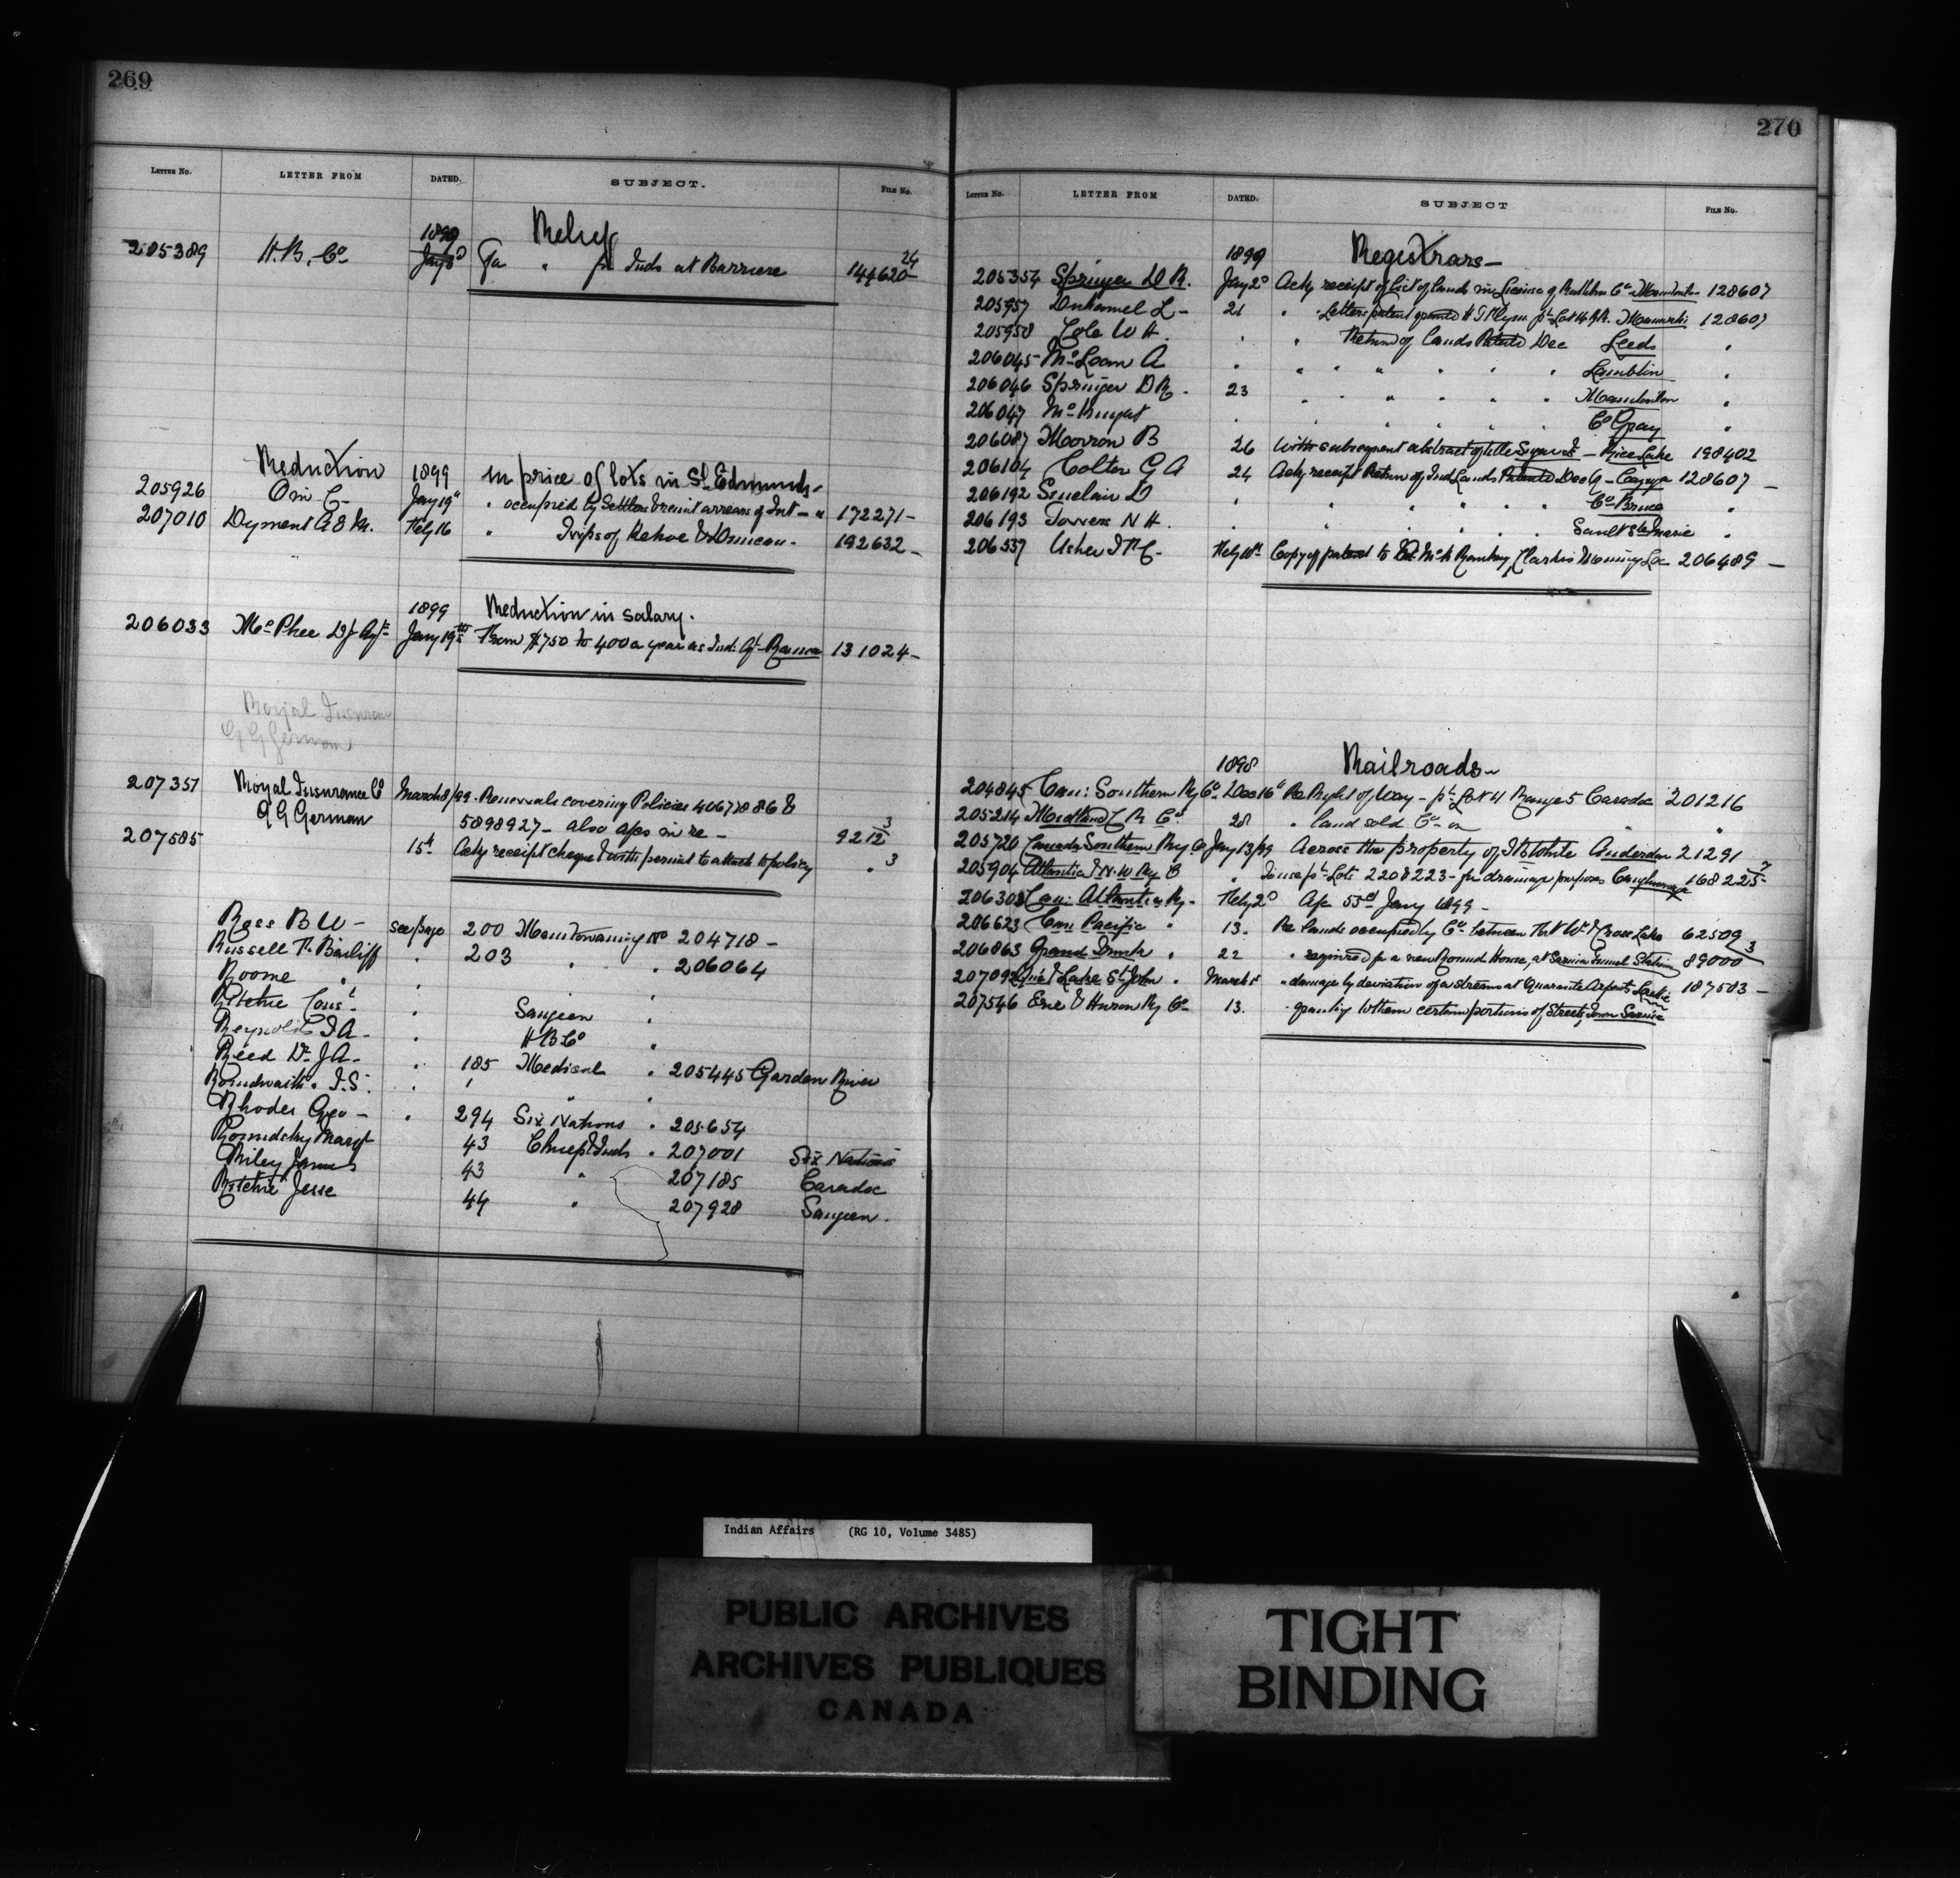 269
LETTER No. LETTER FROM DATED. SUBJECT. FILE No.
1899 Relief
205389 H.B. Co Jany 3d for Inds at Barriere 144620 24
Reduction 1899 in price of lots in St Edmunds
205926 Jany 19th " occupied by Settlers & remit arrears of Int - " 172271 -
207010 Dyment A & M. Feby 16 " 192632 -
1899 Reduction in salary.
206033 McPhee D J Agt Jany 19th From $750 to 400 a year as Ind: Agt - Rama 131024 -
Royal Insurance
G G German
207351 Royal Insurance Co March 8/99 - Renewals covering Policies 4067788 &
G G German 5898927 - also aps in re - 9212 3
207585 15th Ackg receipt cheque & with permit to attach to policy " 3
Ross B W - see page 200 Manitowaning No 204718 -
Russell R. Bailiff " 203 " " 206064
Roome " "
Ritchie Const " Saugeen "
Reynolds J A - " H B Co "
Reed Dr J A - " 185 Medical " 205445 Garden River
J.S. " " " "
Rhodes Geo - " 294 Six Nations " 205654
Margt 43 Chiefs & Inds " 207001 Six Nations
Riley James 43 " 207185 Caradoc
Ritchie Jesse 44 " 207928 Saugeen.
270
LETTER No. LETTER FROM DATED. SUBJECT FILE No.
1899 Registrars -
205354 Springer D R. Jany 2d Ackg receipt of list of lands in 128607
205957 Duhamel L - 21 " Letters patent 128607
205958 Cole W H. " " Return of Lands Patented Dec Leeds "
206045 McLean A " " " " " " " Lambton "
206046 Springer D R. 23 " " " " " " "
206047 McKnight " " " " " Co Gray "
206087 Morrow B 26 With subsequent abstract of title - Rice Lake 198402
206104 Colter G A 24 Ackg receipt Return of Ind Lands Patented Dec - Cayuga 128607 -
206192 Sinclair D " " " " " " Co Bruce "
206193 Towers N H. " " " " " Sault Ste Marie "
206537 Usher Feby 10th Copy of patent to 206489 -
1898 Railroads -
204845 Can: Southern Ry Co - Dec 16th Re Right of Way - pt Lot 11 Range 5 Caradoc 201216
205214 Midland R Co. 28 " land sold Co - on " "
205720 Canada Southern Ry Co Jany 13/99 Across the property of White Anderdon 21291
205904 Atlantic & N. W Ry Co " pt Lots 220 & 223 - for drainage purposes Caughnawaga 168225 7
206303 Can: Atlantic Ry - Feby 2d Jany 1899 -
206623 Can Pacific " 13. Re lands occupied by Co. between & Cross Lake 62509
206863 Grand Trunk " 22 " required for a new Round House, at Sarnia Tunnel Station 89000 3
Que & Lake St John " March 1st " damage by deviation of a stream at 187503 -
207546 Erie & Huron Ry Co 13. " granting to them certain portions of Streets, Town Sarnia
Indian Affairs (RG 10, Volume 3485)
PUBLIC ARCHIVES
ARCHIVES PUBLIQUES
CANADA
TIGHT
BINDING